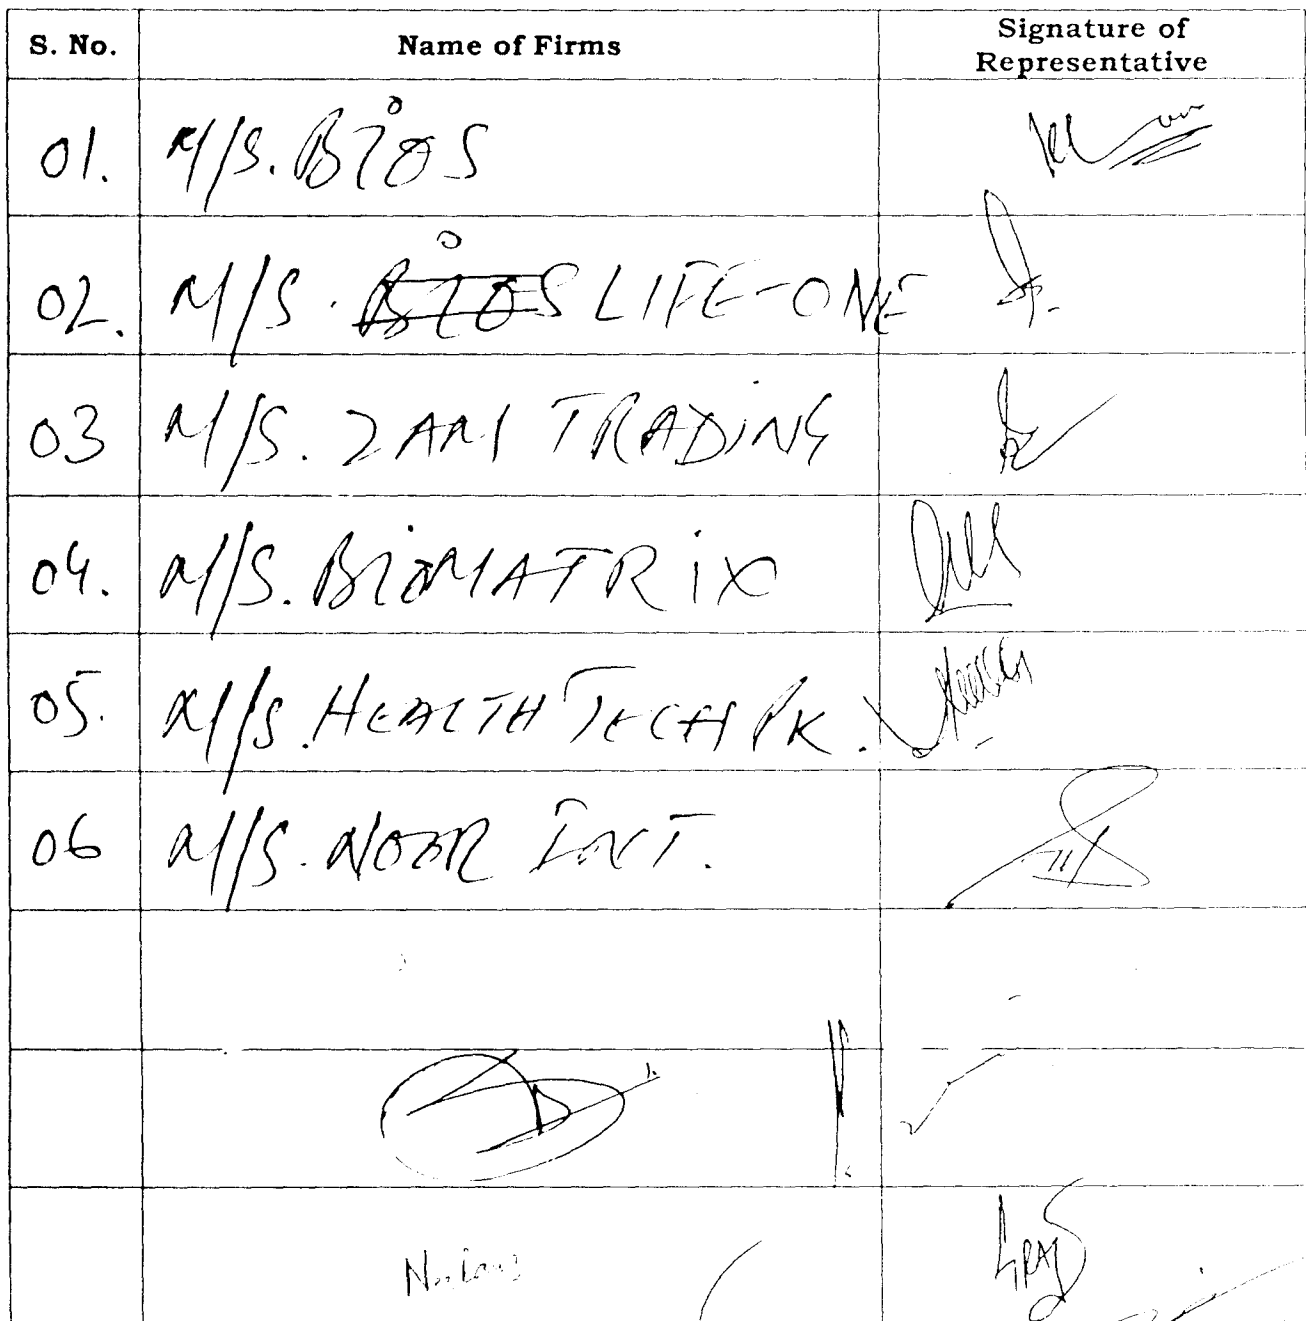 S. No. Name of Firms Signature of Representative
01. M/S. BIOS
02. M/S. BIOS LIFE-ONE
03 M/S. ZAMI TRADING
04. M/S. BIOMATRIX
05. M/S. HEALTH TECH PK.
06 M/S. NOOR INT.